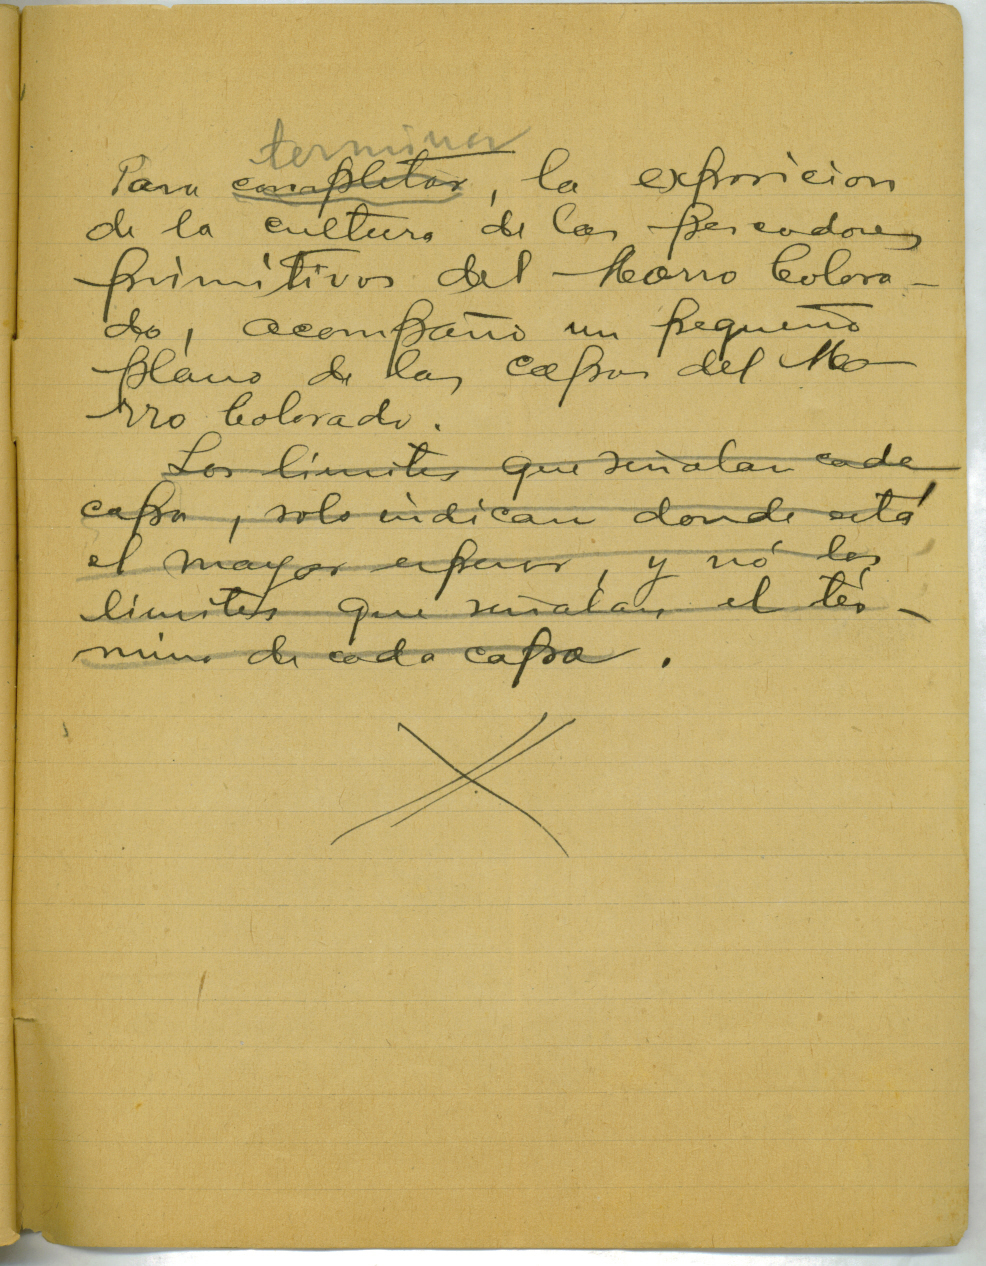 terminar
Para completar, la exposicion
de la cultura de los pescadores
primitivos del Morro Colora-
do, acompaño un pequeño
plano de las capas del Mo
rro Colorado.
Los limites que señalan cada
capa, solo indican donde está
el mayor espesor, y nó los
limites que señalan el tér-
mino de cada capa.